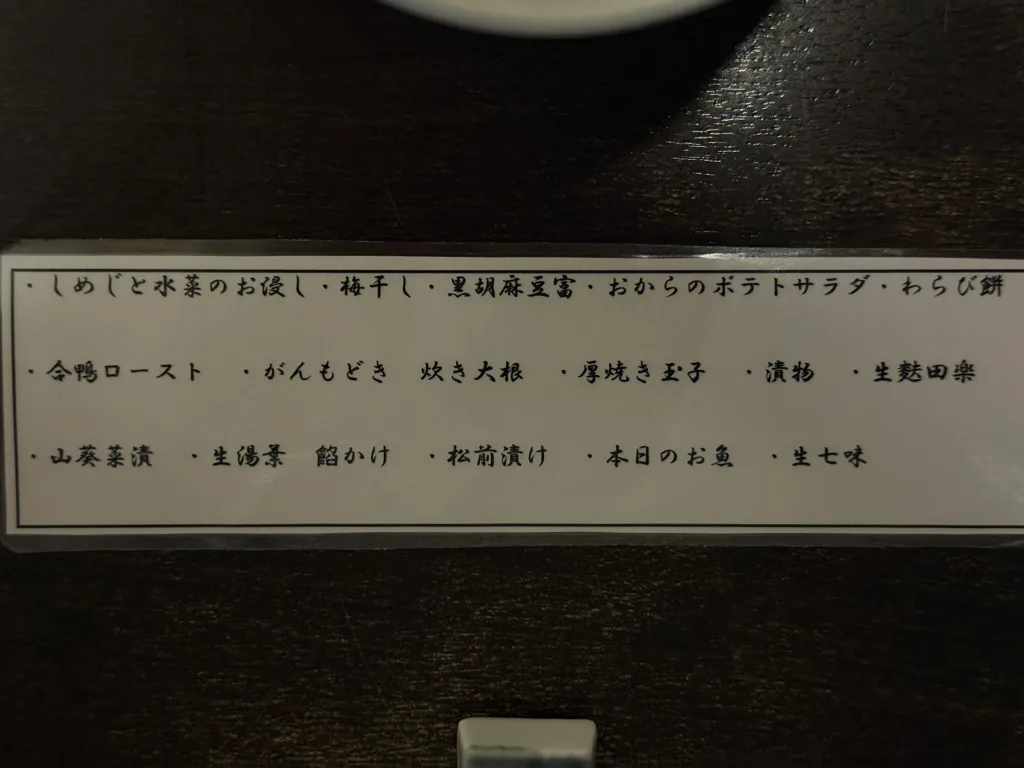 ・しめじと水菜のお浸し・梅干し・黒胡麻豆富・おからのポテトサラダ・わらび餅
・合鴨ロースト　・がんもどき　炊き大根　・厚焼き玉子　・漬物　・生麩田楽
・山葵菜漬　・生湯葉　餡かけ　・松前漬け　・本日のお魚　・生七味